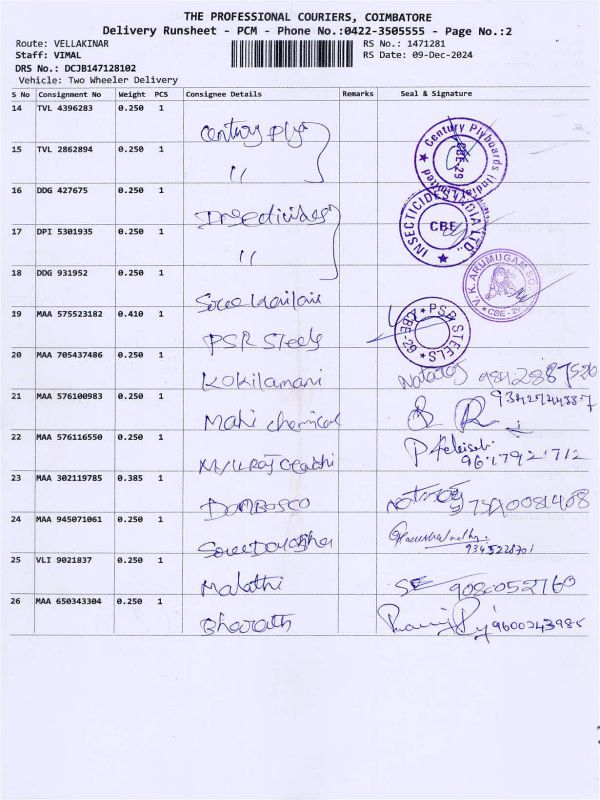 THE PROFESSIONAL COURIERS, COIMBATORE
Delivery Runsheet - PCM - Phone No.:0422-3505555 - Page No.:2
Route: VELLAKINAR RS No.: 1471281
Staff: VIMAL RS Date: 09-Dec-2024
DRS No.: DCJB147128102
Vehicle: Two Wheeler Delivery
S No Consignment No Weight PCS Consignee Details Remarks Seal & Signature
14 TVL 4396283 0.250 1 Century Ply
15 TVL 2862894 0.250 1 " Century Plyboards (India) Limited CBE-29
16 DDG 427675 0.250 1 Insecticides
17 DPI 5301935 0.250 1 " INSECTICIDES INDIA LTD. CBE
18 DDG 931952 0.250 1 V.K. ARUMUGAM SO CBE - 29
19 MAA 575523182 0.410 1 PSR Steels PSR STEELS CBE-29
20 MAA 705437486 0.250 1 Kokilamani
21 MAA 576100983 0.250 1 Mahi chemical
22 MAA 576116550 0.250 1
23 MAA 302119785 0.385 1 DOMBOSCO
24 MAA 945071061 0.250 1
25 VLI 9021837 0.250 1 Malathi 9080052760
26 MAA 650343304 0.250 1 Bharath 9600243985